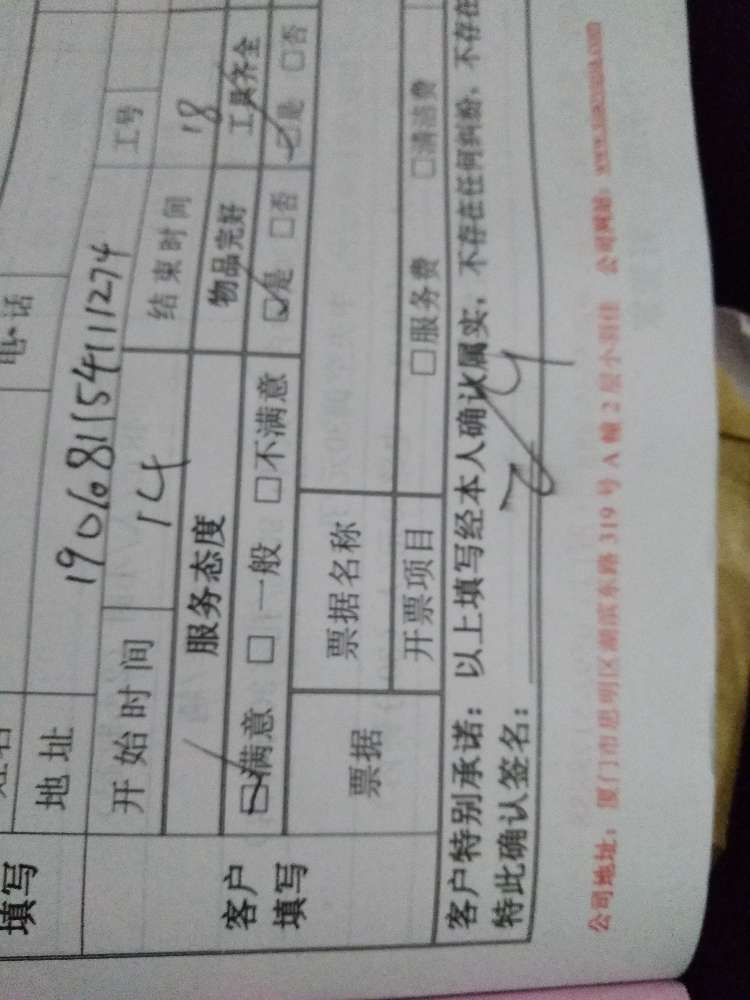 填写
电话
地址 190681154111274
开始时间 14 结束时间 18 工号
服务态度 物品完好 工具齐全
☑满意 □一般 □不满意 ☑是 □否 ☑是 □否
客户填写
票据 票据名称
开票项目 □服务费 □清洁费
客户特别承诺：以上填写经本人确认属实，不存在任何纠纷，不存在
特此确认签名：
公司地址：厦门市思明区湖滨东路319号A幢2层小羽佳 公司网站：